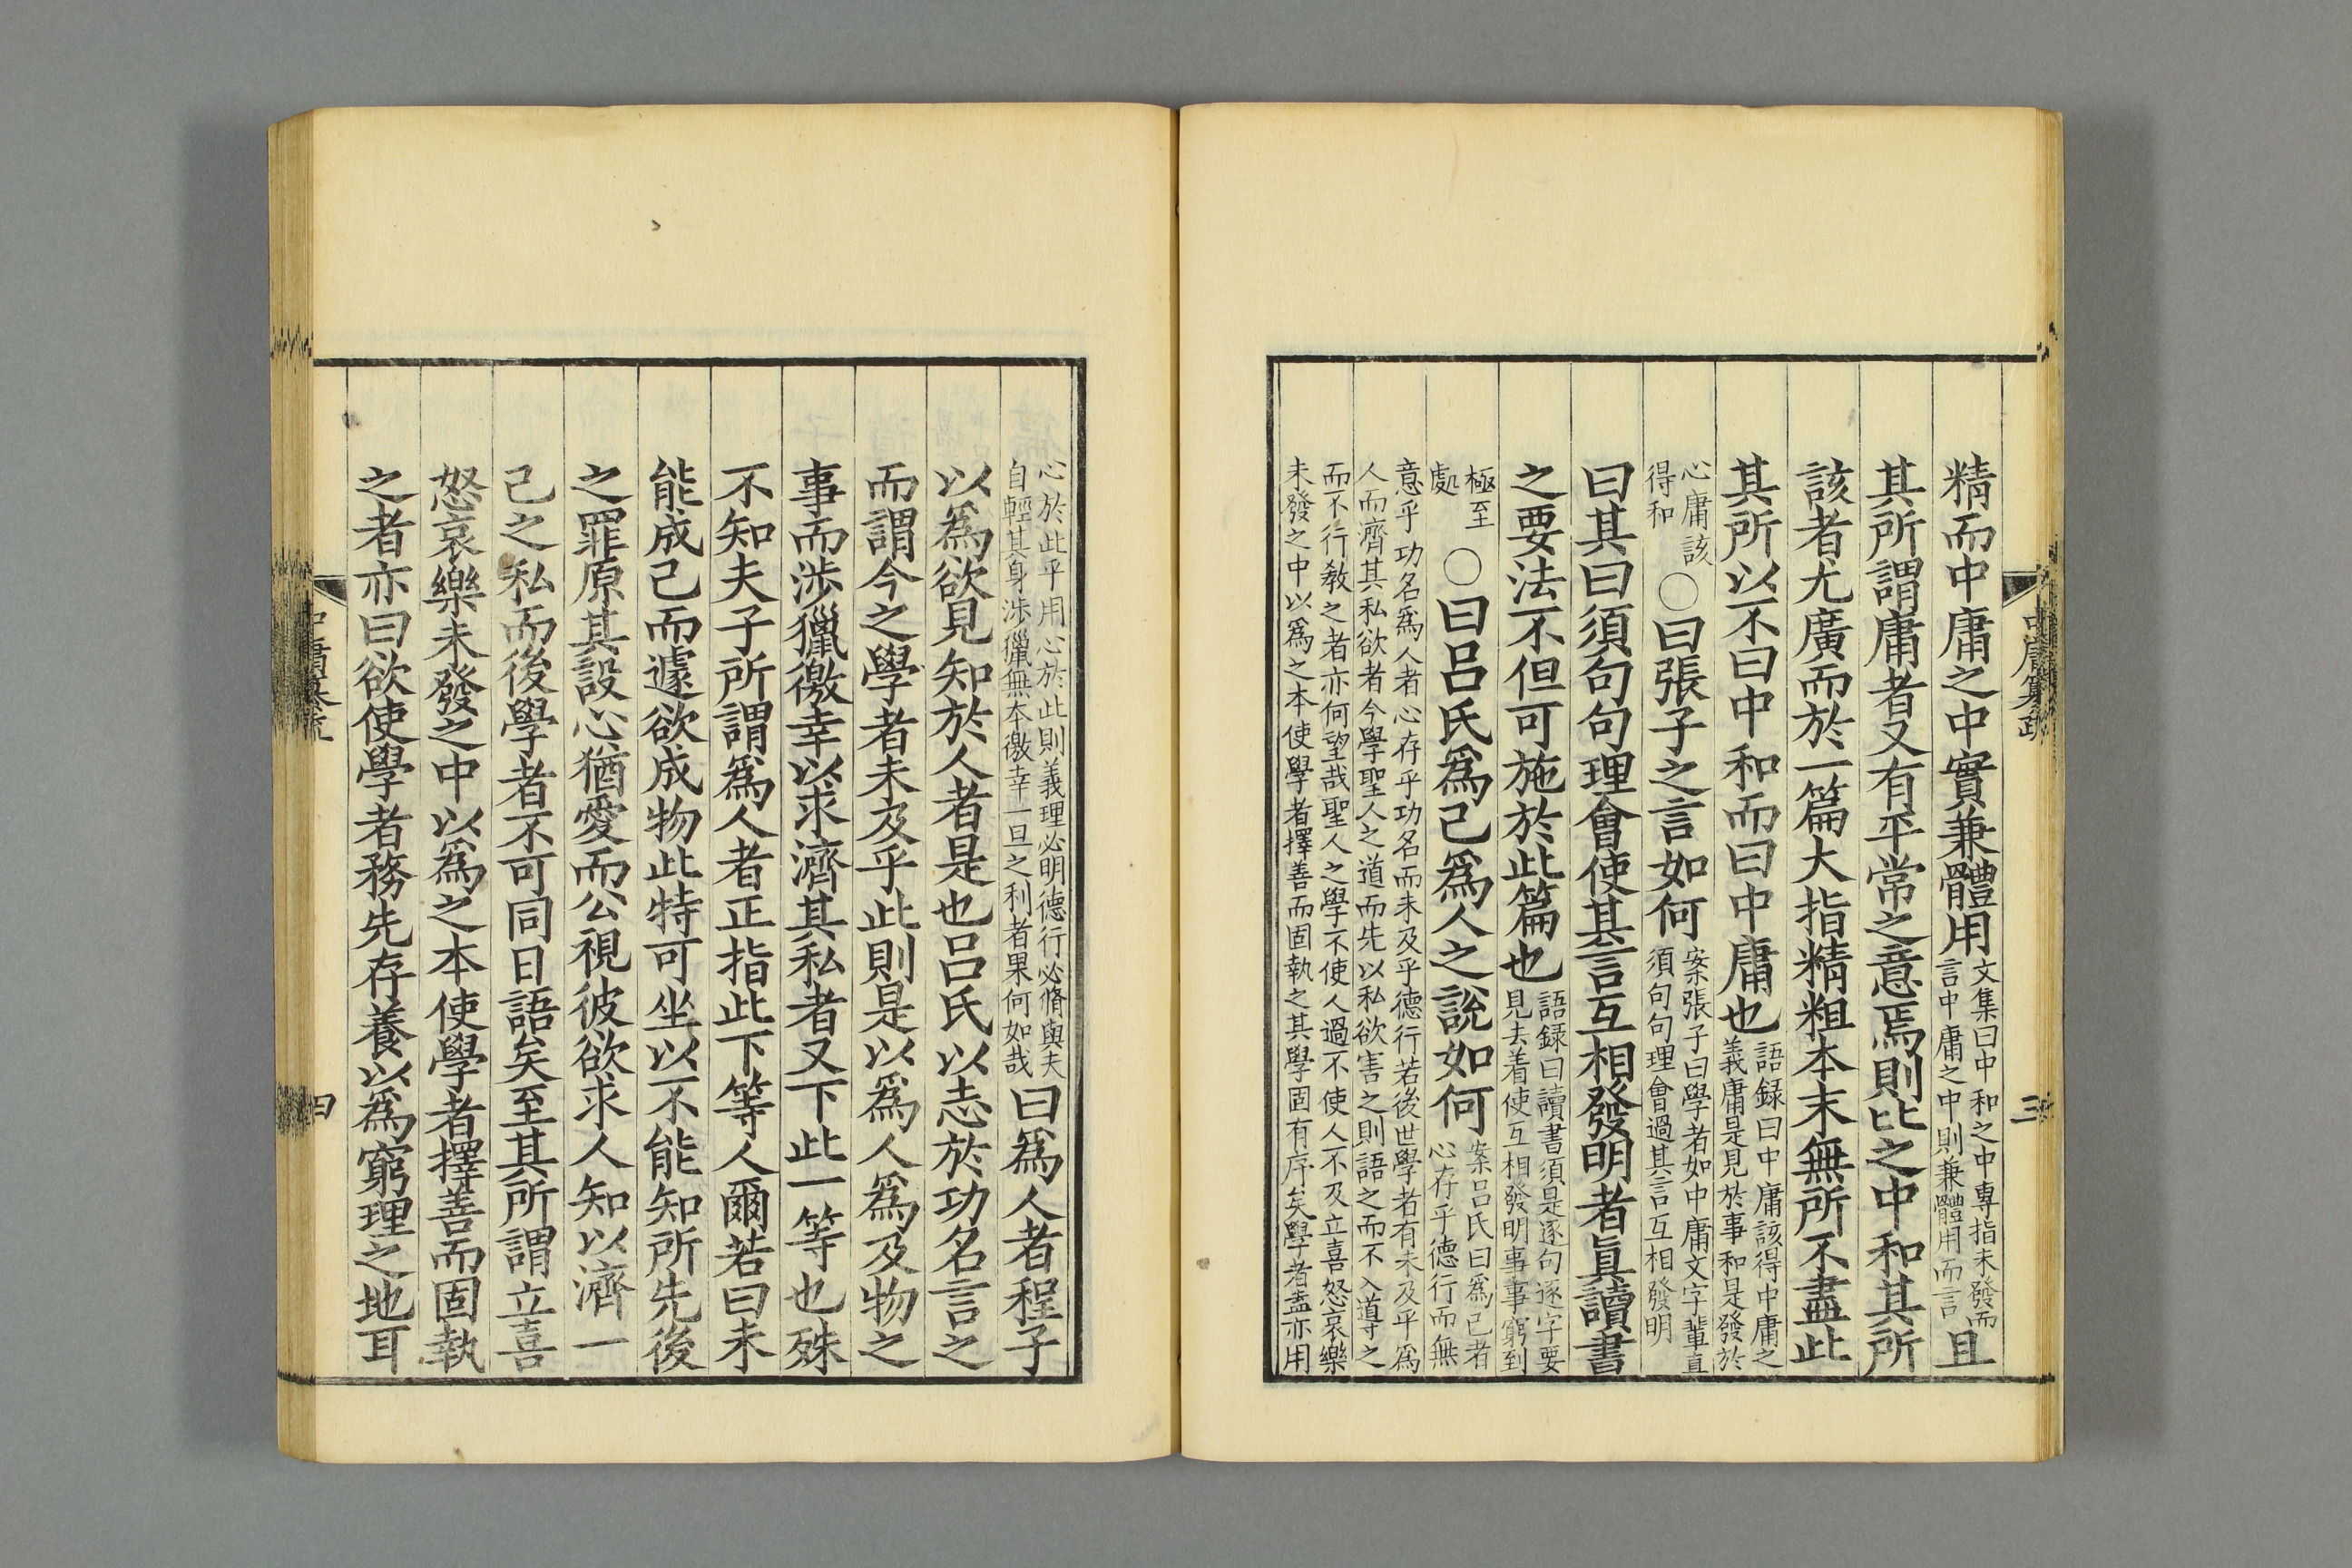 中庸纂疏
三
精而中庸之中實兼體用文集曰中和之中專指未發而言中庸之中則兼體用而言且
其所謂庸者又有平常之意焉則比之中和其所
該者尤廣而於一篇大指精粗本末無所不盡此
其所以不曰中和而曰中庸也語録曰中庸該得中庸之義庸是見於事和是發於
心庸該得和○曰張子之言如何案張子曰學者如中庸文字軰直須句句理會過其言互相發明
曰其曰須句句理會使其言互相發明者眞讀書
之要法不但可施於此篇也語録曰讀書須是逐句逐字要見去着使互相發明事事窮到
極至處○曰吕氏爲己爲人之說如何案吕氏曰爲己者心存乎德行而無
意乎功名爲人者心存乎功名而未及乎德行若後世學者有未及乎爲
人而濟其私欲者今學聖人之道而先以私欲害之則語之而不入導之
而不行教之者亦何望哉聖人之學不使人過不使人不及立喜怒哀樂
未發之中以爲之本使學者擇善而固執之其學固有序矣學者盍亦用
心於此乎用心於此則義理必明德行必脩與夫
自輕其身渉獵無本徼幸一旦之利者果何如哉曰爲人者程子
以爲欲見知於人者是也吕氏以志於功名言之
而謂今之學者未及乎此則是以爲人爲及物之
事而渉獵徼幸以求濟其私者又下此一等也殊
不知夫子所謂爲人者正指此下等人爾若曰未
能成己而遽欲成物此特可坐以不能知所先後
之罪原其設心猶愛而公視彼欲求人知以濟一
己之私而後學者不可同日語矣至其所謂立喜
怒哀樂未發之中以爲之本使學者擇善而固執
之者亦曰欲使學者務先存養以爲窮理之地耳